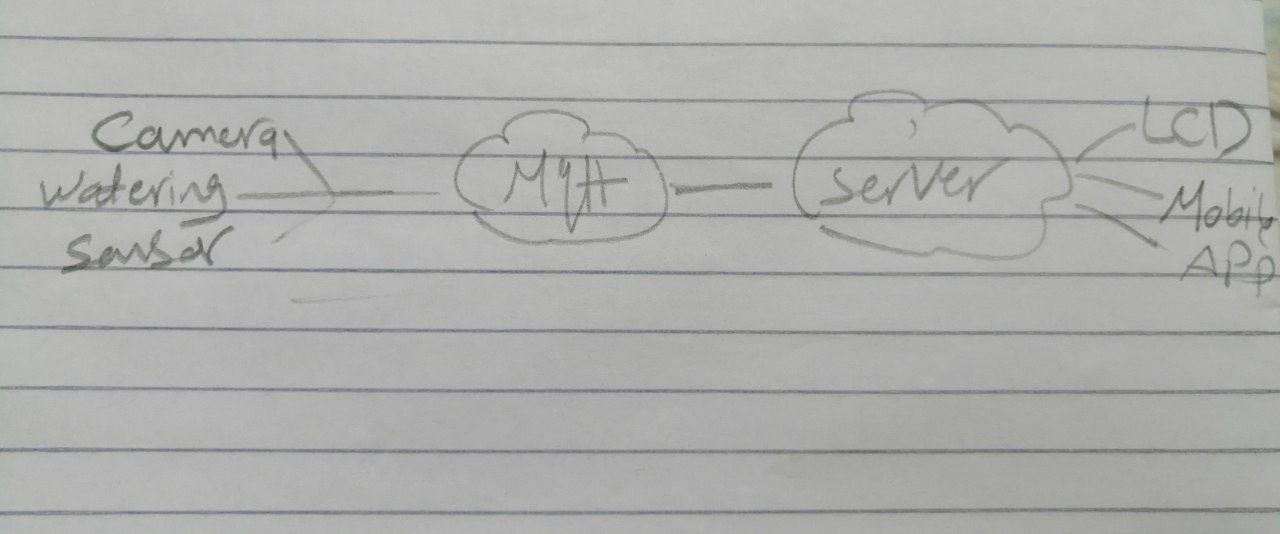 Camera
watering
Sensor
MqH
Server
LCD
Mobile
APP